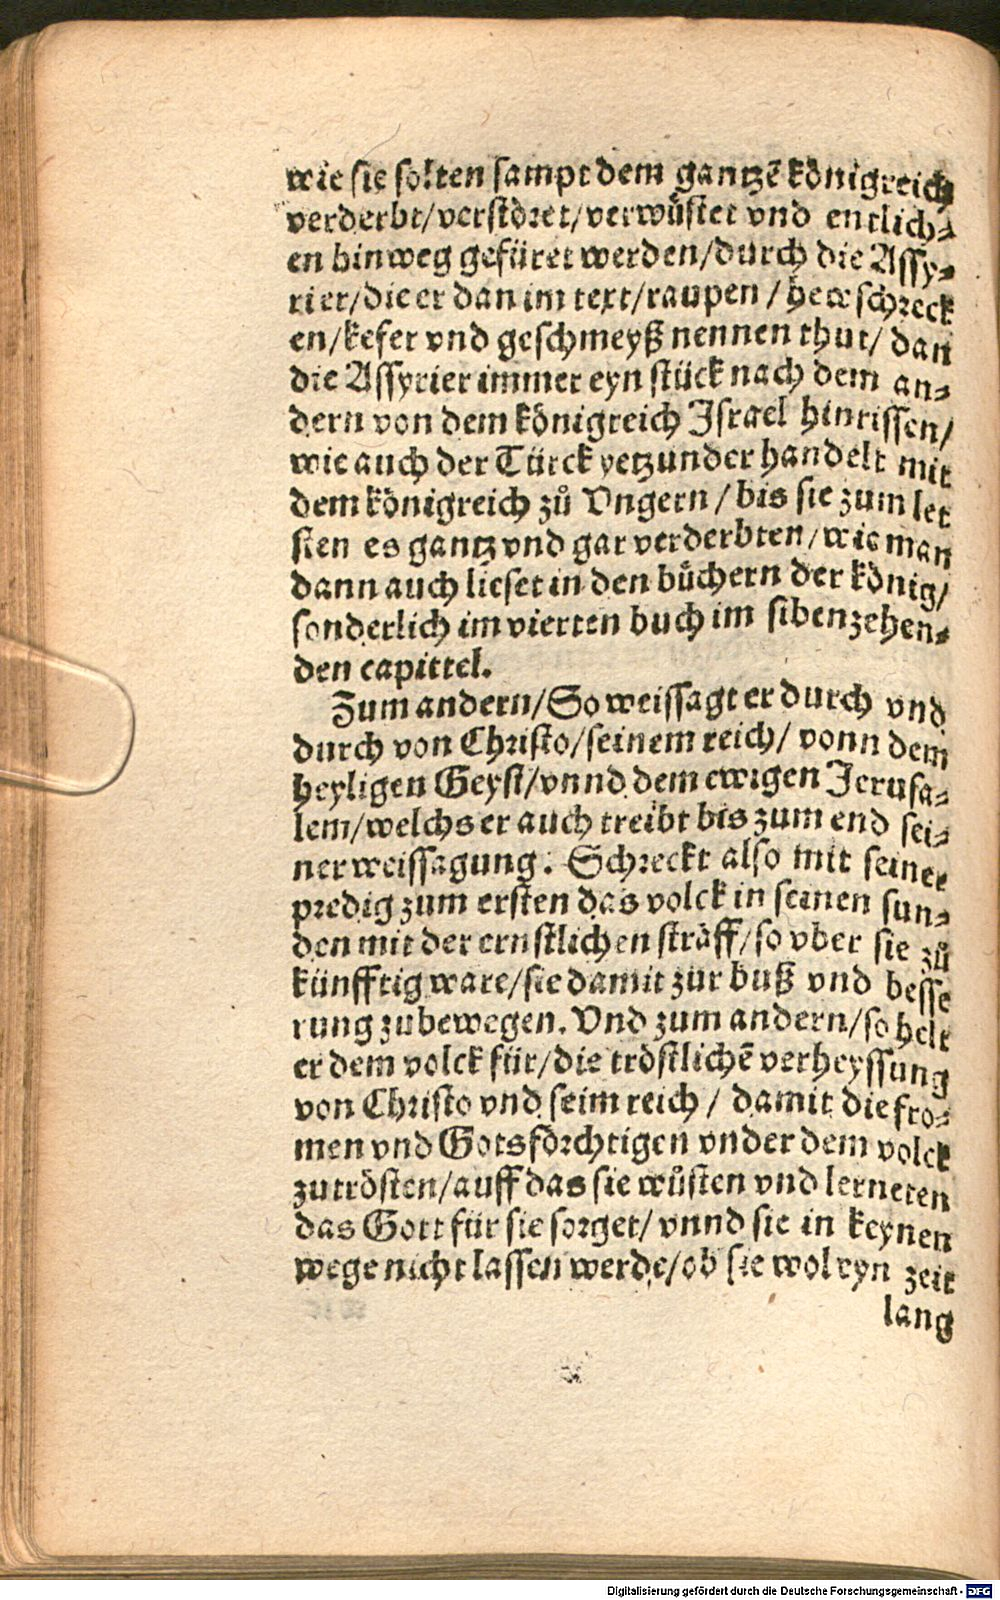 wie sie solten sampt dem gantzē königreich
verderbt/verstöret/verwüstet vnd entlich⸗
en hinweg gefüret werden/durch die Assy⸗
rier/die er dan im text/raupen/hewschreck
en/kefer vnd geschmeyß nennen thut/dan
die Assyrier immer eyn stück nach dem an⸗
dern von dem königreich Israel hinrissen/
wie auch der Türck yetzunder handelt mit
dem königreich zů Vngern/bis sie zum let
sten es gantz vnd gar verderbten/wie man
dann auch lieset in den büchern der könig/
sonderlich im vierten buch im sibenzehen⸗
den capittel.
Zum andern/So weissagt er durch vnd
durch von Christo/seinem reich/vonn dem
heyligen Geyst/vnnd dem ewigen Jerusa⸗
lem/welchs er auch treibt bis zum end sei⸗
ner weissagung. Schreckt also mit seiner
predig zum ersten das volck in seinen sun⸗
den mit der ernstlichen sträff/so vber sie zů
künfftig ware/sie damit zur buß vnd besse
rung zubewegen. Vnd zum andern/so helt
er dem volck für/die tröstlichē verheyssung
von Christo vnd seim reich/damit die fro⸗
men vnd Gotsförchtigen vnder dem volck
zu trösten/auff das sie wůsten vnd lerneten
das Gott für sie sorget/vnnd sie in keynen
wege nicht lassen werde/ob sie wol eyn zeit
lang
Digitalisierung gefördert durch die Deutsche Forschungsgemeinschaft - DFG